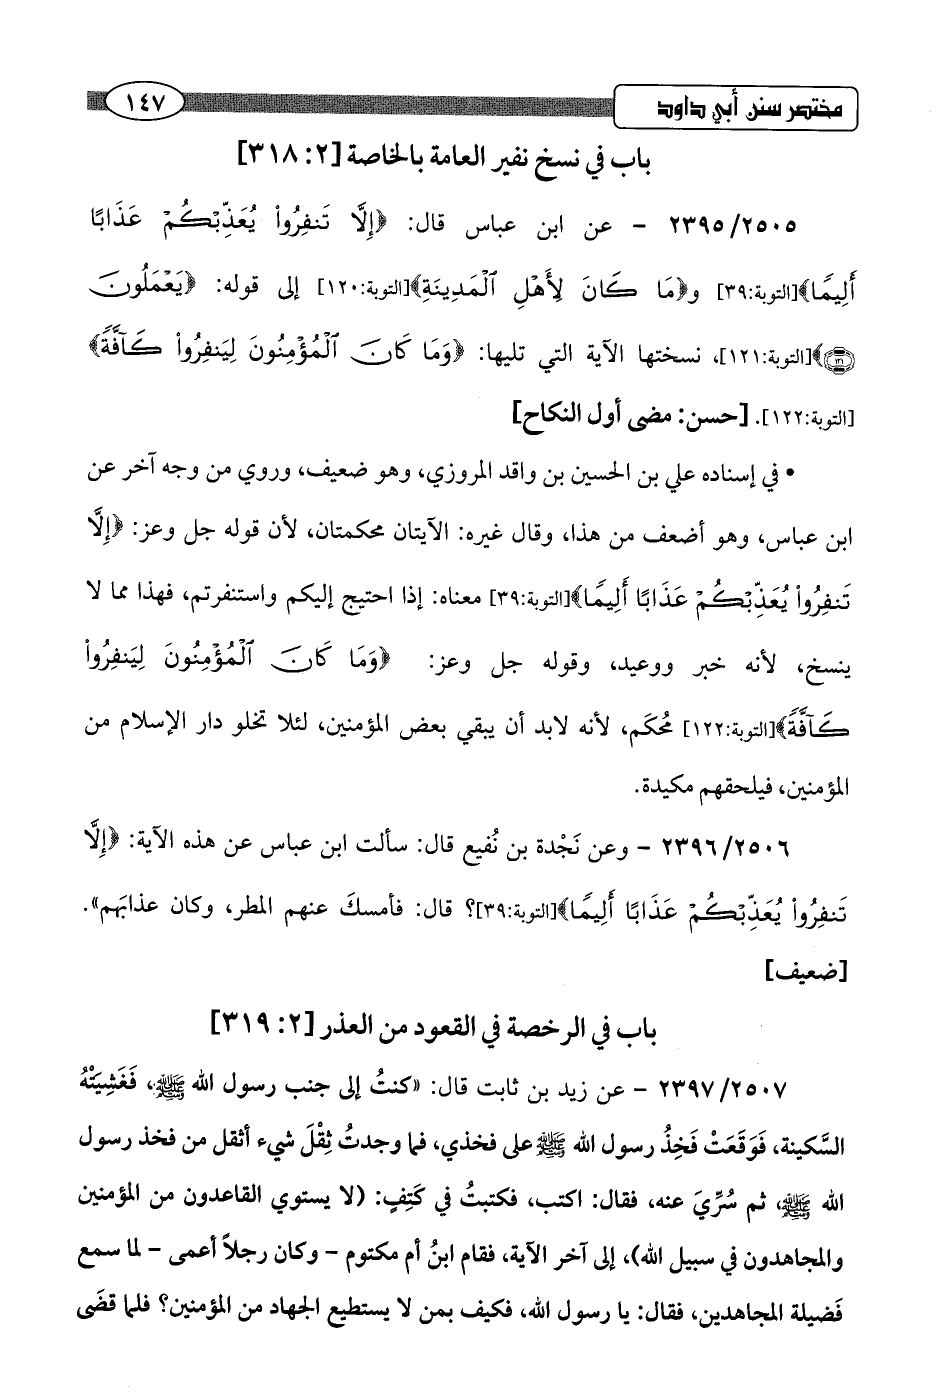 مختصر سنن أبي داود ١٤٧
باب في نسخ نفير العامة بالخاصة [٢: ٣١٨]
٢٣٩٥/٢٥٠٥ - عن ابن عباس قال: ﴿إِلَّا تَنفِرُوا۟ يُعَذِّبْكُمْ عَذَابًا
أَلِيمًا﴾[التوبة:٣٩] و﴿مَا كَانَ لِأَهْلِ ٱلْمَدِينَةِ﴾[التوبة:١٢٠] إلى قوله: ﴿يَعْمَلُونَ
﴿١٢١﴾﴾[التوبة:١٢١]، نسختها الآية التي تليها: ﴿وَمَا كَانَ ٱلْمُؤْمِنُونَ لِيَنفِرُوا۟ كَآفَّةً﴾
[التوبة:١٢٢]. [حسن: مضى أول النكاح]
• في إسناده علي بن الحسين بن واقد المروزي، وهو ضعيف، وروي من وجه آخر عن
ابن عباس، وهو أضعف من هذا، وقال غيره: الآيتان محكمتان، لأن قوله جل وعز: ﴿إِلَّا
تَنفِرُوا۟ يُعَذِّبْكُمْ عَذَابًا أَلِيمًا﴾[التوبة:٣٩] معناه: إذا احتيج إليكم واستنفرتم، فهذا مما لا
ينسخ، لأنه خبر ووعيد، وقوله جل وعز: ﴿وَمَا كَانَ ٱلْمُؤْمِنُونَ لِيَنفِرُوا۟
كَآفَّةً﴾[التوبة:١٢٢] مُحكَم، لأنه لابد أن يبقي بعض المؤمنين، لئلا تخلو دار الإسلام من
المؤمنين، فيلحقهم مكيدة.
٢٣٩٦/٢٥٠٦ - وعن نَجْدة بن نُفيع قال: سألت ابن عباس عن هذه الآية: ﴿إِلَّا
تَنفِرُوا۟ يُعَذِّبْكُمْ عَذَابًا أَلِيمًا﴾[التوبة:٣٩]؟ قال: فأمسكَ عنهم المطر، وكان عذابَهم».
[ضعيف]
باب في الرخصة في القعود من العذر [٢: ٣١٩]
٢٣٩٧/٢٥٠٧ - عن زيد بن ثابت قال: «كنتُ إلى جنب رسول الله ﷺ، فَغَشِيَتْهُ
السَّكينة، فَوَقَعَتْ فَخِذُ رسول الله ﷺ على فخذي، فما وجدتُ ثِقْلَ شيء أثقل من فخذ رسول
الله ﷺ، ثم سُرِّيَ عنه، فقال: اكتب، فكتبتُ في كَتِفٍ: (لا يستوي القاعدون من المؤمنين
والمجاهدون في سبيل الله)، إلى آخر الآية، فقام ابنُ أم مكتوم - وكان رجلاً أعمى - لما سمع
فَضيلة المجاهدين، فقال: يا رسول الله، فكيف بمن لا يستطيع الجهاد من المؤمنين؟ فلما قضَى